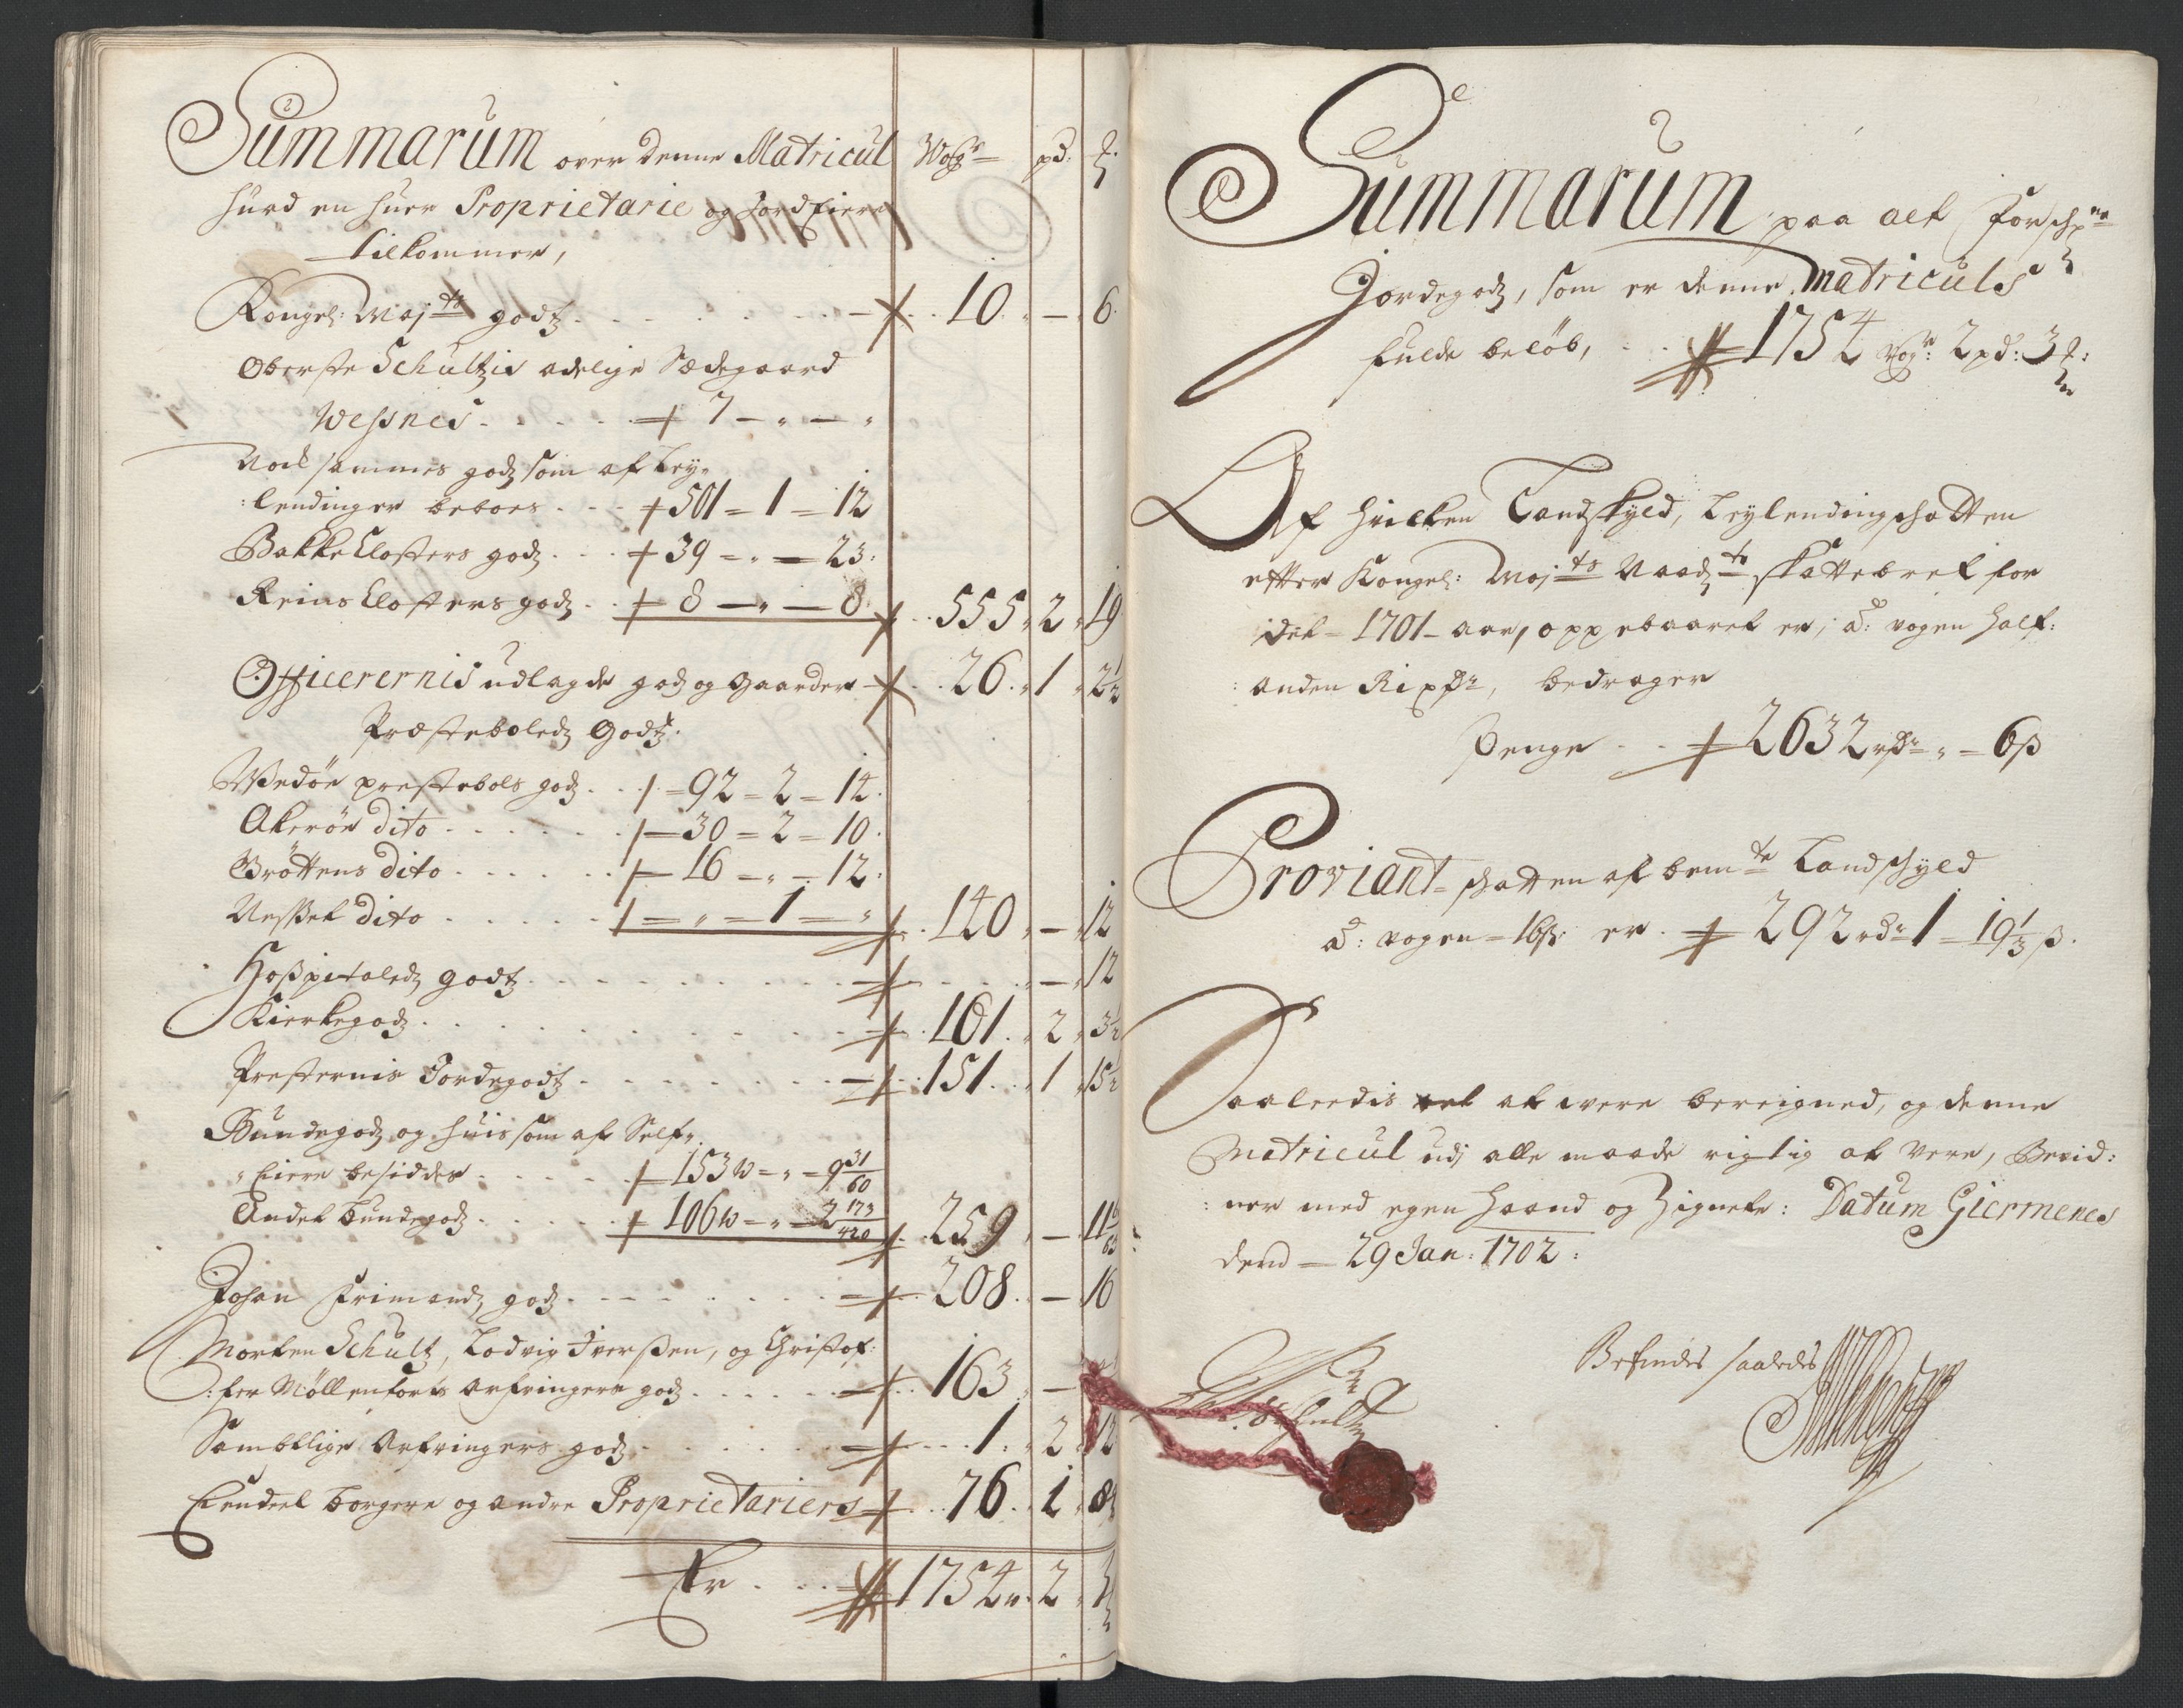 Summarum over denne Matricul Wog pd:
huad en huer Proprietarie og Jord Eiere
tilkommer,
Kongel: Maj:ts godtz 10 - 6.
Oberste Schultzis adelige Sædegaard
Wessnes 7 - " - "
Noch sammes godz som af Ley,
:lendinger beboes 501 = 1 = 12
Bakke Closters godz 39 = " = 23:
Reins Closters godz 8 - " - 8. 555 " 2 " 19
Officerernis udlagde godz og Gaarder 26. " 1 " 2½
Præsteboledz Godtz.
Wedöe prestebols godz 92 = 2 = 14.
Akeröe dito 30 = 2 = 10.
Gröttens dito 16 = " = 12:
Nesset dito " = 1 = " 140 " - " 12
Hospitaledz godtz - " 12
Kierkegodz 161. " 2 " 3½
Presternis Jordegodtz 151. " 1 " 15½
Bundegodz og huis som af Self,,
" Eiere besiddes 153 w = " = 9 31/60
Andet bundegodz 106 w = " = 2 173/420 259 " - 11
Johan Frimands godz 208. - 16
Morten Schultz, Lodvig Iverssen, og Christof:
:fer Möllenforts arfvingers godz 163 -
Samptlige Arfvingers godz 1. " 2 12
Eendeel borgere og andre Proprietariers 76. " 1 " 8
Er 1754 w. 2
Summarum paa alt forsch:ne
Jordegodz, som er denne Matriculs
fulde beløb, 1754 wog: 2 pd: 3
Af huilken Landskyld, Leylendingschatten
efter Kongel: Maj:ts Naadz:te skattebref for
idet = 1701 - aar, oppebaaret er, a: wogen half:
:anden Rixdr, bedrager
Penge 2632 rdr " = 6 ß
Proviant = schatten af bem:te Landschyld
a: wogen = 16 ß: er 292 rdr 1 = 19⅓ ß.
Saaledis at være bereigned, og denne
Matricul udj alle maade rigtig at være, Bevid:
:ner med egen haand og Zignete: Datum Giermenes
dend = 29 Jan: 1702:
Befindes saaledes